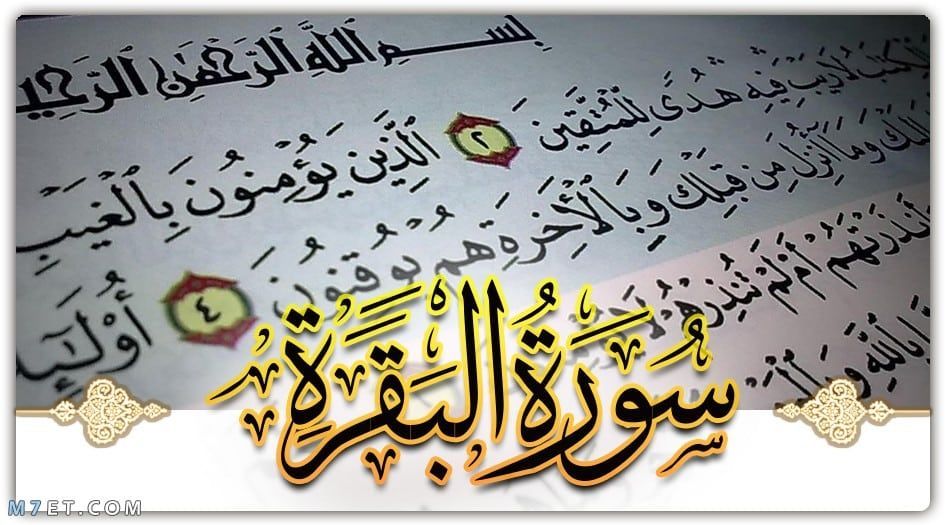 بِسْمِ ٱللَّهِ ٱلرَّحْمَٰنِ ٱلرَّحِي
ٱلْكِتَٰبُ لَا رَيْبَ فِيهِ هُدًى لِّلْمُتَّقِينَ ٢ ٱلَّذِينَ يُؤْمِنُونَ بِٱلْغَيْبِ
وَمَآ أُنزِلَ مِن قَبْلِكَ وَبِٱلْأَخِرَةِ هُمْ يُوقِنُونَ ٤ أُو۟لَٰٓئِ
أَنذَرْتَهُمْ أَمْ لَمْ تُنذِرْهُمْ لَا
بِٱللَّهِ وَ
سُورَةُ الْبَقَرَةِ
M7ET.COM